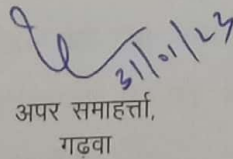 31/01/23
अपर समाहर्त्ता,
गढ़वा